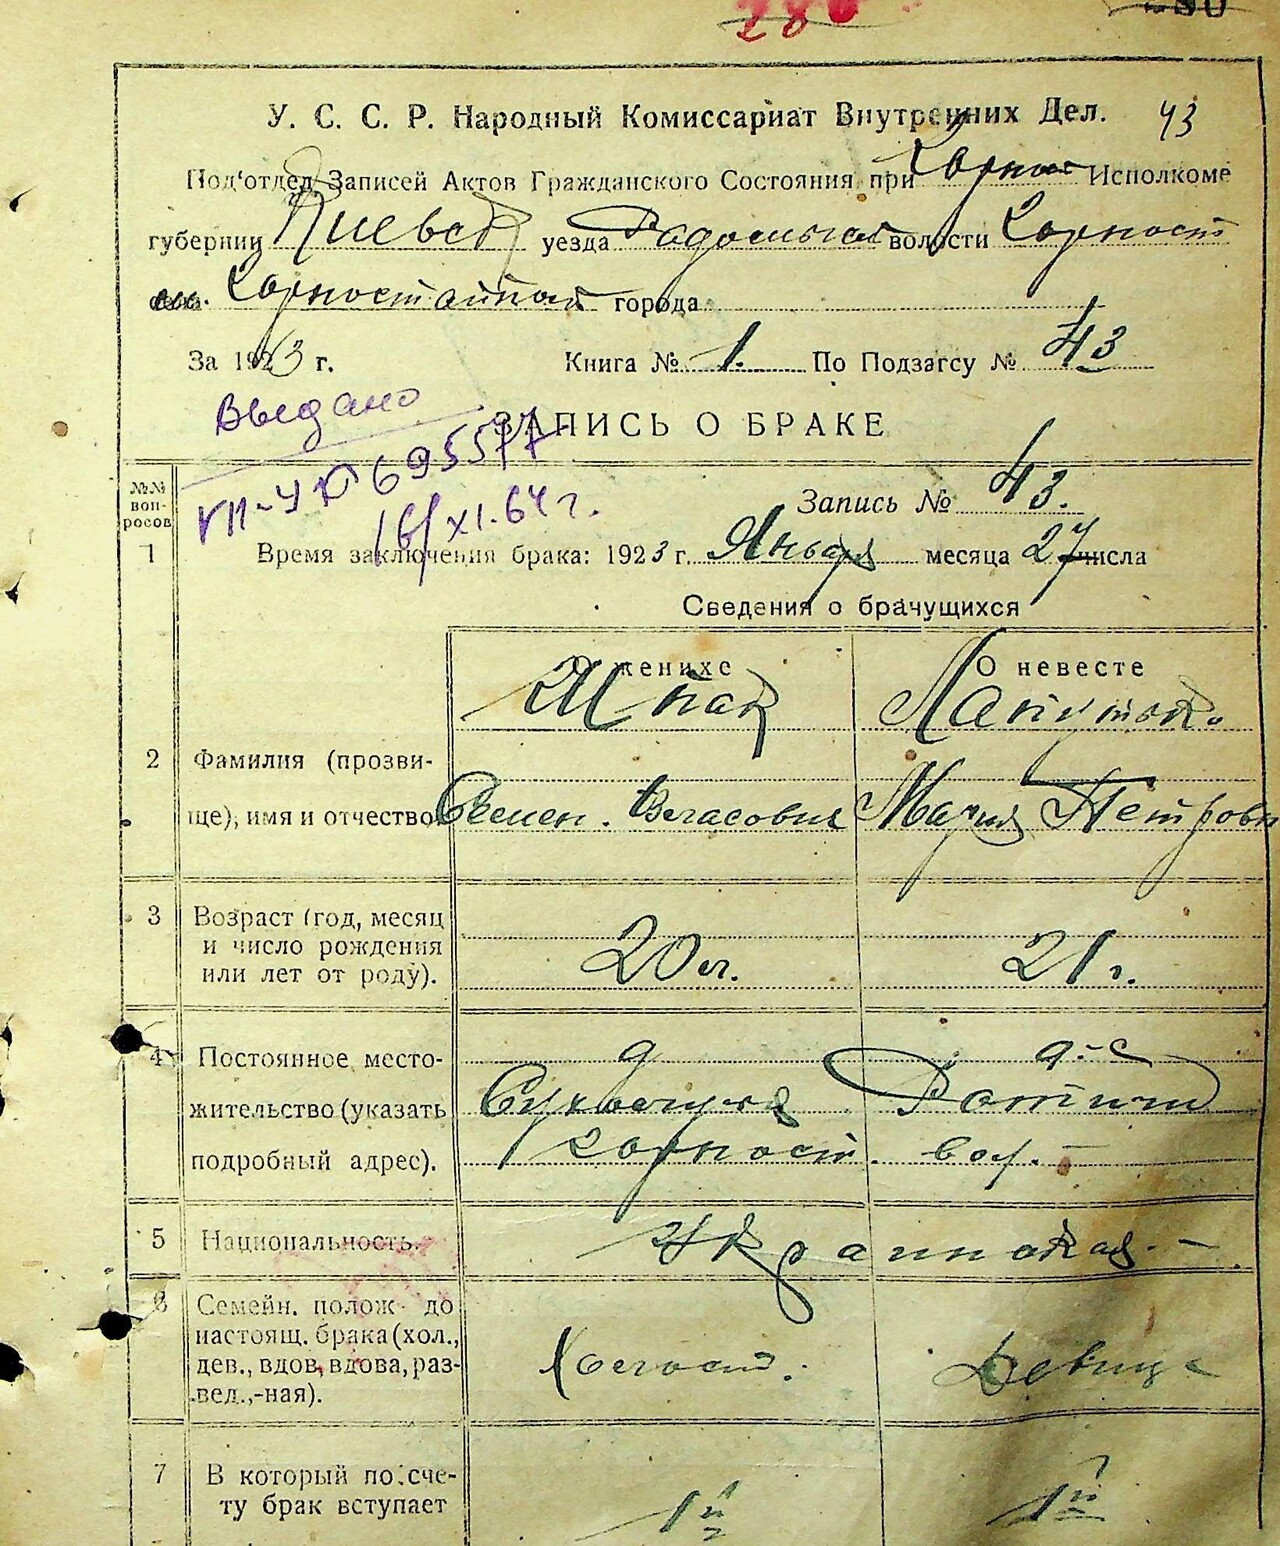 286
У. С. С. Р. Народный Комиссариат Внутренних Дел. 43
Под'отдел Записей Актов Гражданского Состояния при Горнос Исполкоме
губернии Киевск уезда Радомысл волости Горност
села Горностайпол города
За 1923 г. Книга № 1. По Подзагсу № 43
Выдано
ЗАПИСЬ О БРАКЕ
УП-УЮ 695577
16/XI.64 г.
Запись № 43.
№№ вопросов
1 Время заключения брака: 1923 г. Января месяца 27 числа
Сведения о брачущихся
О женихе О невесте
Шпак Лапутько
2 Фамилия (прозви-
ще), имя и отчество Семен Власович Мария Петровн
3 Возраст (год, месяц
и число рождения
или лет от роду). 20 л. 21 г.
4 Постоянное место- д д-с
жительство (указать
подробный адрес). горност. вол.
5 Национальность. Украинская
6 Семейн. полож до
настоящ. брака (хол.,
дев., вдов, вдова, раз-
вед.,-ная). Холост. Девица
7 В который по счe-
ту брак вступает 1й 1й